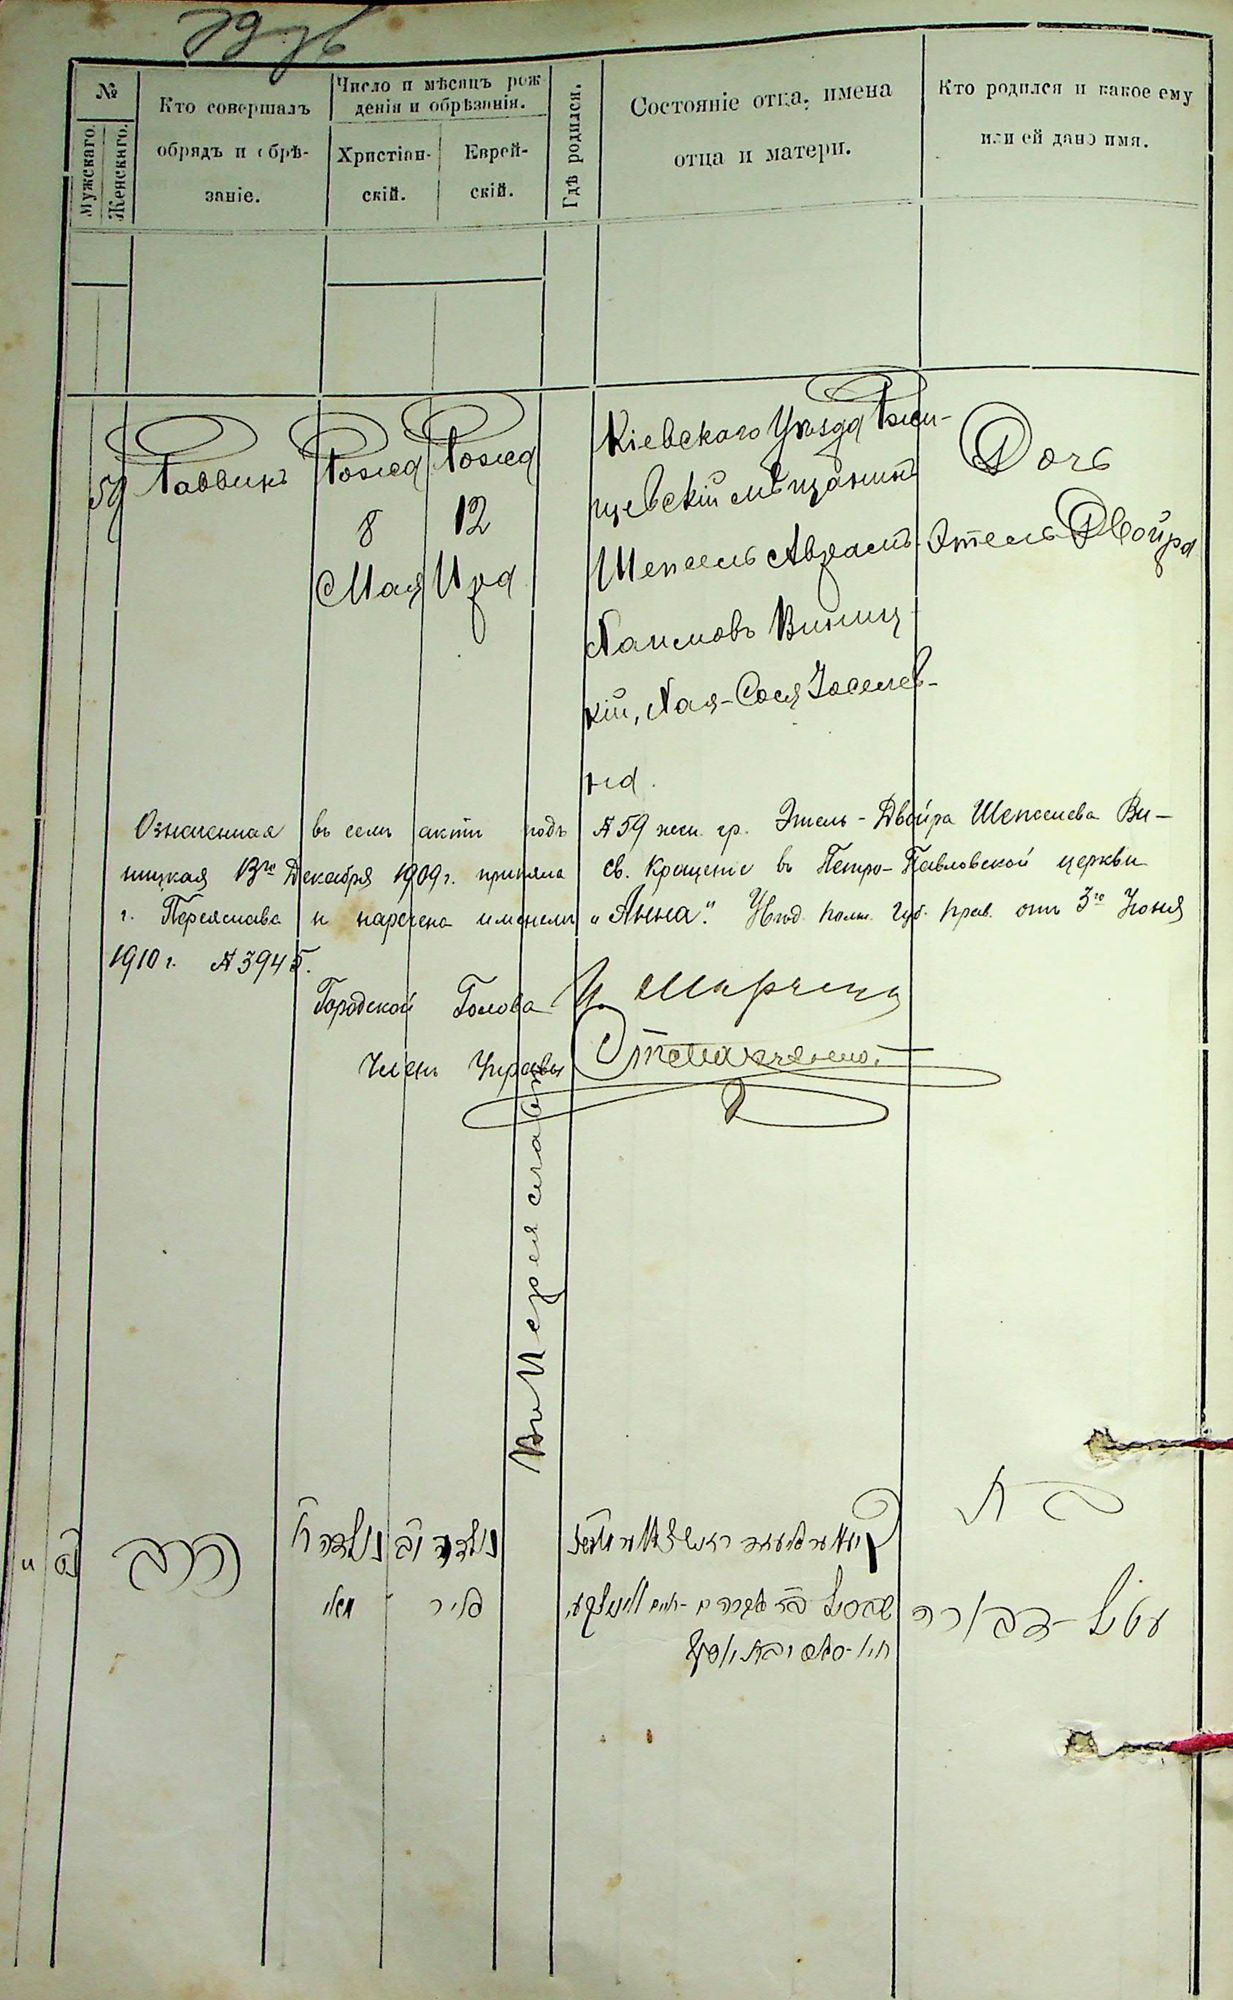 №
Мужскаго.
Женскаго.
Кто совершалъ
обрядъ и обрѣ-
заніе.
Число и мѣсяцъ рож
денія и обрѣзанія.
Христіан-
скій.
Еврей-
скій.
Гдѣ родился.
Состояніе отца, имена
отца и матери.
Кто родился и какое ему
или ей дано имя.
59
Раввинъ
Рожед
8
Мая
Рожед
12
Іяра
Кіевскаго Уѣзда Ржи-
щевскій мѣщанинъ
Шепсель Аврамъ
Хаимовъ Виниц
кій, Хая-Сося Іоселев-
на.
Дочь
Этель Двойра
Означенная въ семъ актѣ подъ №59 жен. гр. Этель-Двойра Шепселева Ви-
ницкая 13го Декабря 1909г. приняла св. Крещеніе въ Петро-Павловской церкви
г. Переяслава и наречена именемъ „Анна". Увѣд. Полт. Губ. Прав. отъ 3го Іюня
1910г. №3945.
Городской Голова
Членъ Управы
Въ Переяславѣ
בת
הרב
נולדה ח
מאי
נולדה יב
אייר
עטיל-דבורה